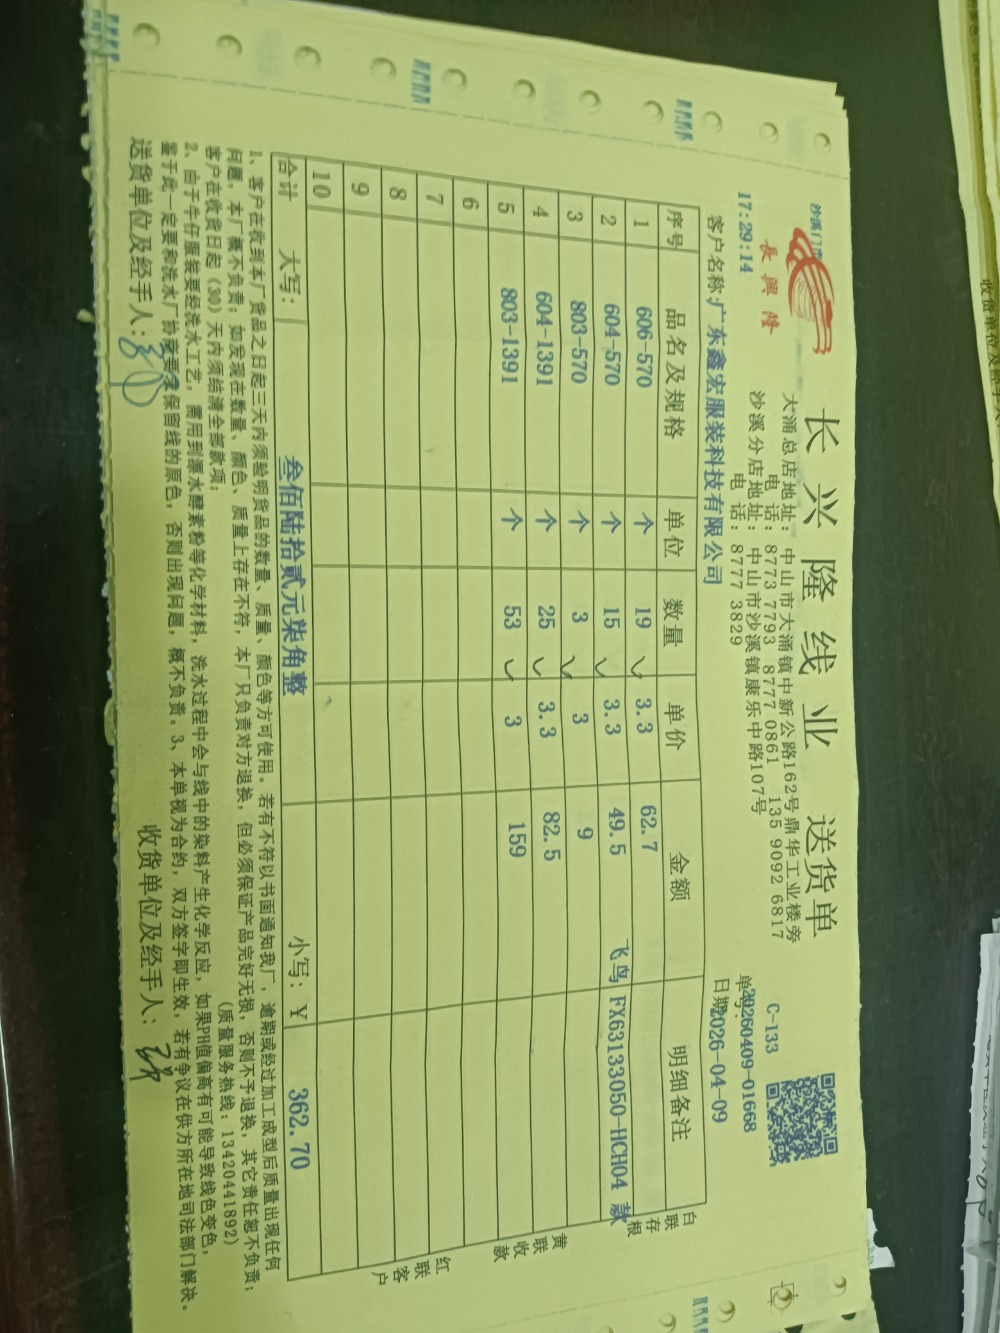 沙溪门市
長興隆
长兴隆线业 送货单
大涌总店地址: 中山市大涌镇中新公路162号鼎华工业楼旁
电 话: 8773 7793 8777 0861 135 9092 6817
沙溪分店地址: 中山市沙溪镇康乐中路107号
电 话: 8777 3829
C-133
17:29:14
单号:20260409-01668
客户名称:广东鑫宏服装科技有限公司
日期2026-04-09
序号 品名及规格 单位 数量 单价 金额 明细备注
1 606-570 个 19 3.3 62.7
2 604-570 个 15 3.3 49.5 飞鸟 FX63133050-HCH04 款
3 803-570 个 3 3 9
4 604-1391 个 25 3.3 82.5
5 803-1391 个 53 3 159
6
7
8
9
10
合计 大写: 叁佰陆拾贰元柒角整 小写: ¥ 362.70
白联存根
黄联收款
红联客户
1、客户在收到本厂货品之日起三天内须验明货品的数量、质量、颜色等方可使用。若有不符以书面通知我厂,逾期或经过加工成型后质量出现任何
问题,本厂概不负责;如发现在数量、颜色、质量上存在不符,本厂只负责对方退换,但必须保证产品完好无损,否则不予退换,其它责任恕不负责;
客户在收货日起(30)天内须结清全部款项; (质量服务热线:13420441892)
2、由于牛仔服装要经洗水工艺,需用到漂水酵素粉等化学材料,洗水过程中会与线中的染料产生化学反应,如果PH值偏高有可能导致线色变色,
鉴于此一定要和洗水厂协商要求保留线的原色,否则出现问题,概不负责。3、本单视为合约,双方签字即生效,若有争议在供方所在地司法部门解决。
送货单位及经手人: 收货单位及经手人:
收货单位及经手人